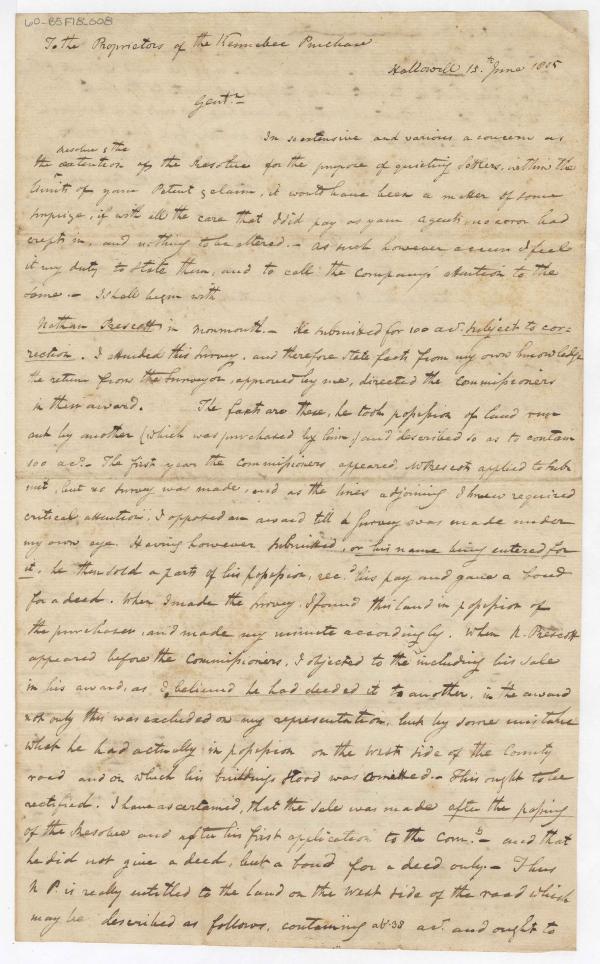 60-B5F18L008
To the Proprietors of the Kennebec Purchase
Hallowell 15.th June 1805
Gent.n
In so extensive and various a concern as
resolve & the
the extention of the Resolve for the purpose of quieting Setlers, within the
limits of your Patent & claim, it would have been a matter of some
surprize, if with all the care that I did pay as your agent, no error had
crept in, and nothing to be altered. - As such however occurr I feel
it my duty to state them, and to call the Companys' attention to the
same. - I shall begin with
Nathan Prescott in Monmouth. - He submitted for 100 acs. subject to cor-
rection. I attended this Survey, and therefore state facts from my own knowledge
the return from the Surveyor, approved by me, directed the Commissioners
in their award. The facts are these, he took possession of land run
out by another (which was purchased by him) and described so as to contain
100 acs. - The first year the Commissioners appeared, N Prescott applied to sub-
mit, but no survey was made, and as the lines adjoining I knew required
critical attention, I opposed an award till a Survey was made under
my own eye. Having however submitted, or his name being entered for
it, he then sold a parts of his possession, rec.d his pay and gave a bond
for a deed. When I made the Survey, I found this land in possession of
the purchaser, and made my minute accordingly. When N. Prescott
appeared before the Commissioners, I objected to the including his sale
in his award, as I believed he had deeded it to another, in the award
not only this was excluded on my representation, but by some mistake
what he had actually in possession on the West side of the County
road and on which his buildings stood was omitted. - This ought to be
rectified. I have ascertained, that the sale was made after the passing
of the Resolve and after his first application to the Com.s - and that
he did not give a deed, but a bond for a deed only. - Thus
N P. is really entitled to the land on the West side of the road which
may be described as follows, containing abt. 38 acs. and ought to